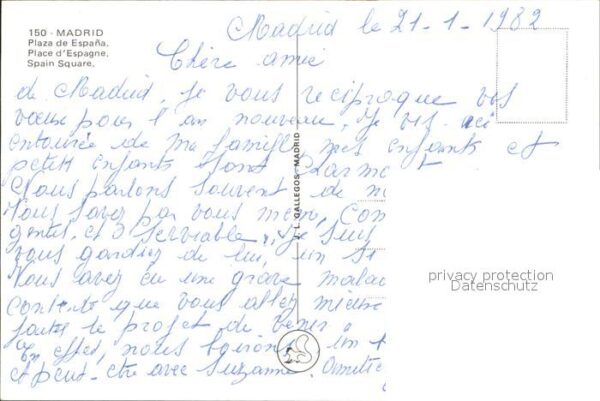 150 - MADRID
Plaza de España.
Place d'Espagne.
Spain Square.
Madrid le 21-1-1982
Chère amie
de Madrid, je vous réciproque vos
vœux pour l'an nouveau, Je vis ici
entourée de ma famille, mes enfants et
petits enfants sont
Nous parlons souvent de
Vous savez par vous
gentil et si serviable, Je suis
vous gardiez de lui, un
Vous avez eu une grave
contente que vous allez
faites le projet de venir
En effet, nous
et peut-être avec Suzanne.
L. GALLEGOS-MADRID
privacy protection
Datenschutz